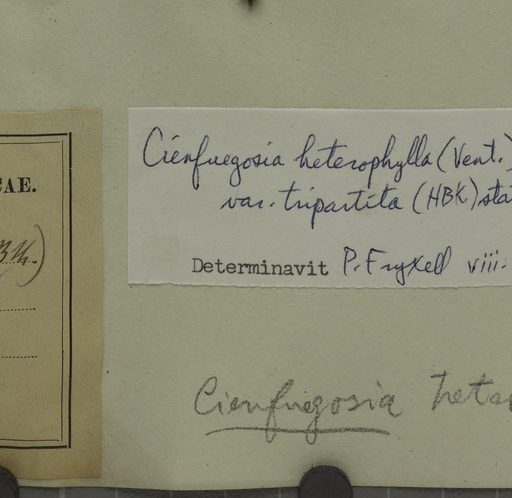 CAE.
Cienfuegosia heterophylla (Vent.)
var. tripartita (HBK) stat
Determinavit P. Fryxell viii.
Cienfuegosia heter